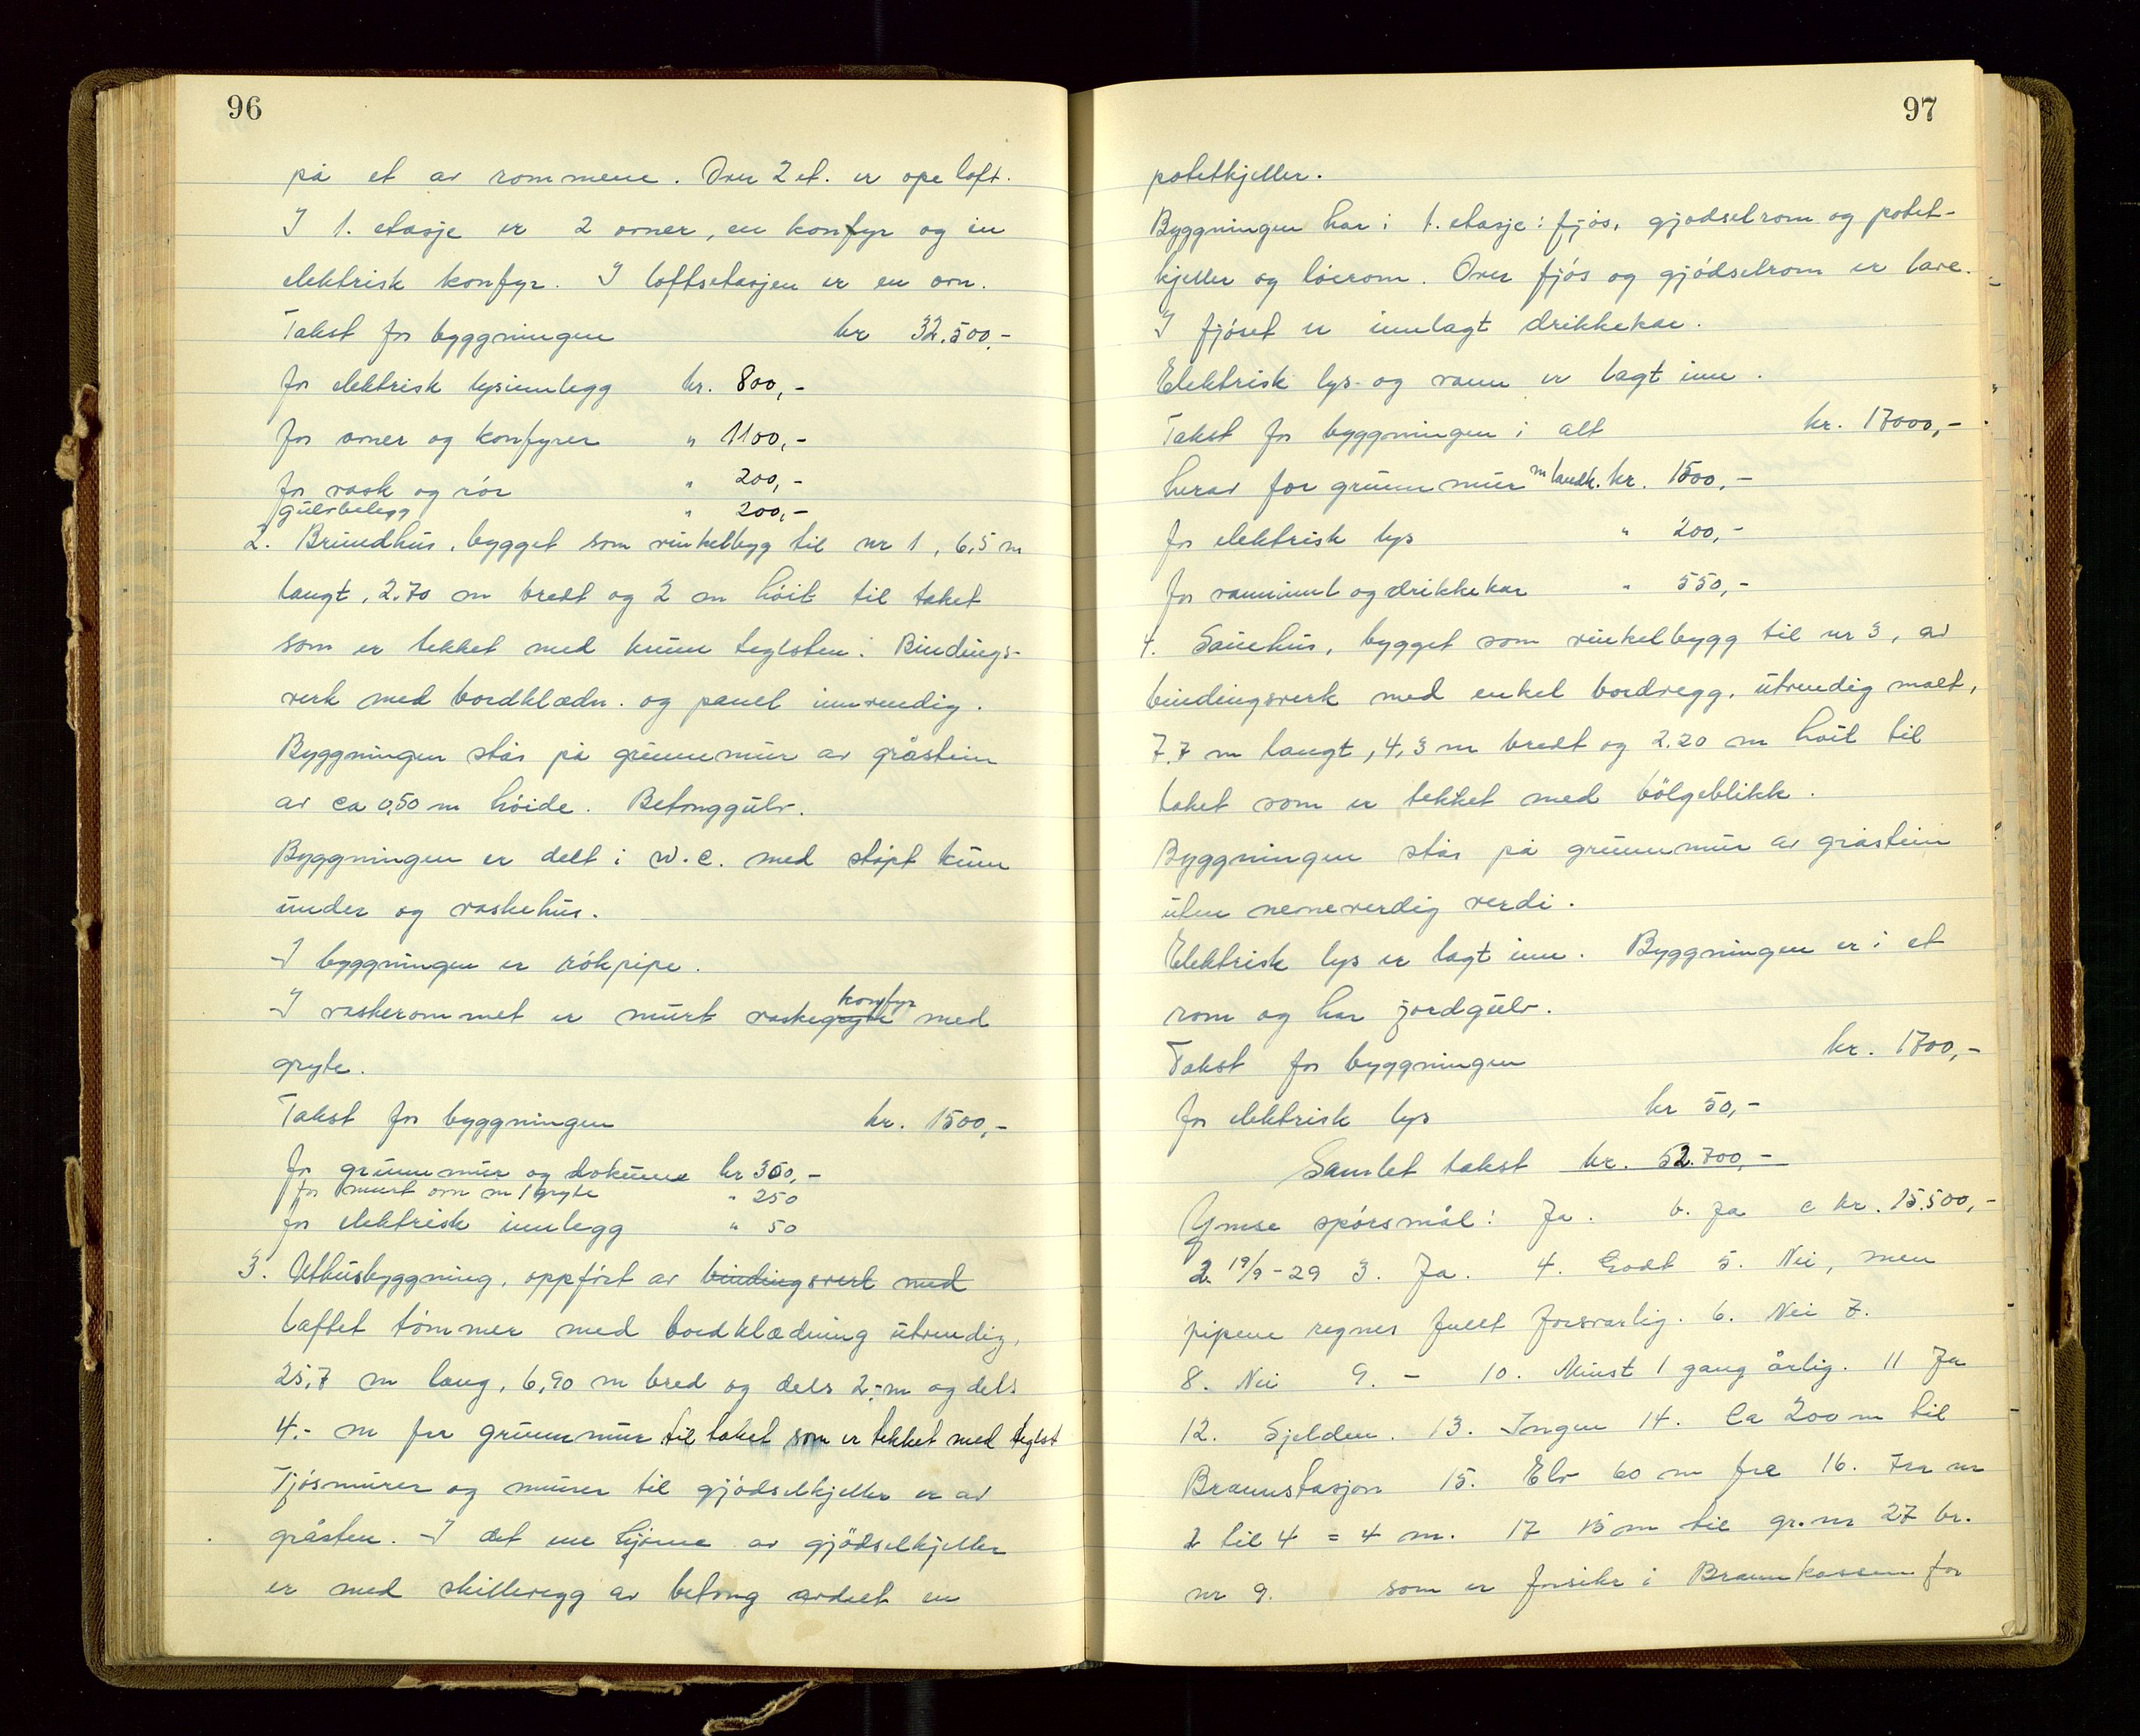 96
på et av rommene. Over 2 et. er ope loft.
I 1. etasje er 2 ovner, en konfyr og en
elektrisk konfyr. I loftsetasjen er en ovn.
Takst for byggningen kr 32.500,-
for elektrisk lysinnlegg kr. 800,-
for ovner og konfyrer " 1100,-
for vask og rör " 200,-
gulvbelegg " 200,-
2. Brendhus, bygget som vinkelbyg til nr 1, 6,5 m
langt, 2.70 m bredt og 2 m höit til taket
som er tekket med krum teglsten. Bindings-
verk med bordklædn. og panel innvendig.
Byggningen står på grunnmur av gråstein
av ca 0,50 m höide. Betonggulv.
Byggningen er delt i W.C. med stöpt kum
under og vaskehus.
I byggningen er rökpipe.
I vaskerommet er murt vaskegryte konfyr med
gryte.
Takst for byggningen kr. 1500,-
for grunnmur og dokumme kr 350,-
for murt ovn m/gryte " 250
for elektrisk innlegg " 50
3. Uthusbyggning, oppfört av bindingsverk med
laftet tömmer med bordklædning utvendig,
25,7 m lang, 6,90 m bred og dels 2,- m og dels
4.- m fra grunnmur til taket som er tekket med teglst
Fjösmurer og murer til gjödselkjeller er av
gråsten. I det ene hjörne av gjödselkjeller
er med skillevegg av betong avdelt en
97
potetkjeller.
Byggningen har i 1. etasje: fjös, gjödselrom og potet-
kjeller og löerom. Over fjös og gjödselrom er låve.
I fjöset er innlagt drikkekar.
Elektrisk lys og vann er lagt inn.
Takst for byggningen i alt kr. 17000,-
herav for grunnmur m landk. kr. 1500,-
for elektrisk lys " 200,-
for vanninnl og drikkekar " 550,-
4. Sauehus, bygget som vinkelbygg til nr 3, av
bindingsverk med enkel bordvegg, utvendig malt,
7.7 m langt, 4,3 m bredt og 2.20 m höit til
taket som er tekket med bölgeblikk.
Byggningen står på grunnmur av gråstein
uten neneverdig verdi.
Elektrisk lys er lagt inn. Byggningen er i et
rom og har jordgulv.
Takst for byggningen kr. 1700,-
for elektrisk lys kr 50,-
Samlet takst kr. 52.700,-
Ymse spörsmål: Ja. b. Ja c kr. 15.500,-
2. 19/9-29 3. Ja. 4. Godt 5. Nei, men
pipene regnes fullt forsvarlig. 6. Nei 7.
8. Nei 9. - 10. Minst 1 gang årlig. 11 Ja
12. Sjelden. 13. Ingen 14. Ca 200 m til
Brannstasjon 15. Elv 60 m fra 16. Fra nr
2 til 4 = 4 m. 17 15 m til gr. nr 27 br.
nr 9. som er forsikr i Brannkassen for